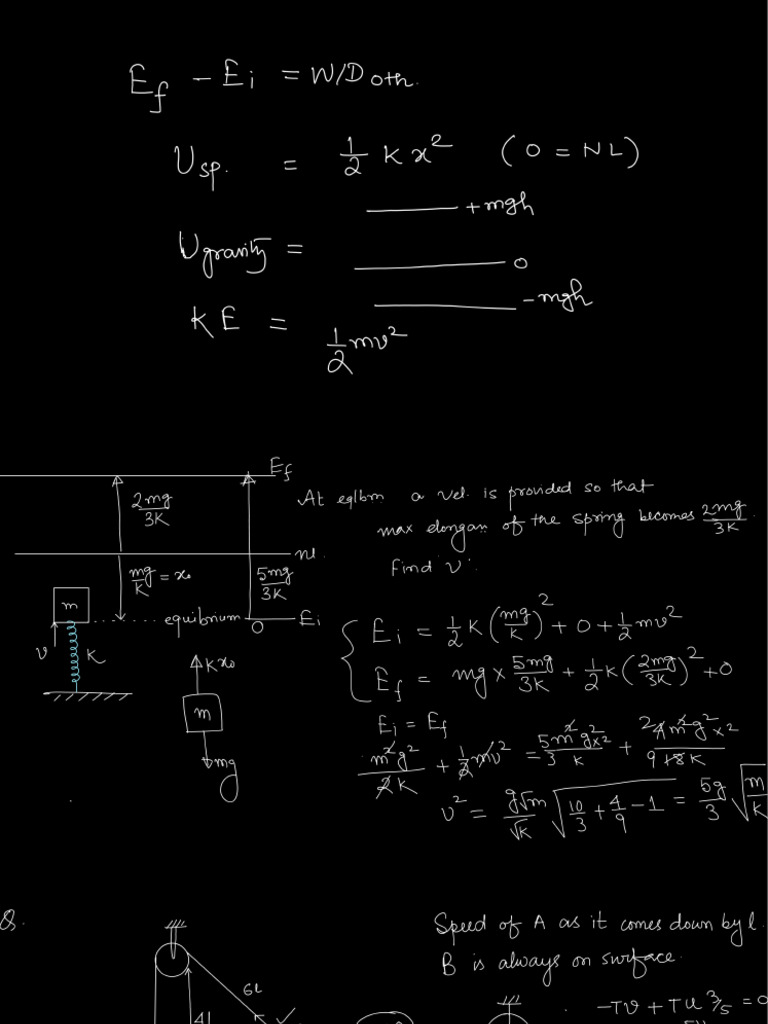 E_f - E_i = W/D oth.
U_sp. = 1/2 K x² (0 = NL)
+mgh
U_gravity = 0
-mgh
KE = 1/2 mv²
E_f
2mg/3K
nl.
mg/K = x₀
5mg/3K
m
equibrium
0
E_i
v
K
Kx₀
m
mg
At eqlbm a vel. is provided so that
max elongan. of the spring becomes 2mg/3K
find 'v'.
E_i = 1/2 K (mg/K)² + 0 + 1/2 mv²
E_f = mg × 5mg/3K + 1/2 K (2mg/3K)² + 0
E_i = E_f
m²g²/2K + 1/2 mv² = 5m²g²×2/3K + 24m²g²×2/9 18K
v² = g√m/√K √(10/3 + 4/9 - 1) = 5g/3 √(m/K)
Q.
Speed of A as it comes down by l.
B is always on surface.
6l
4l
-TV + TU 3/5 = 0